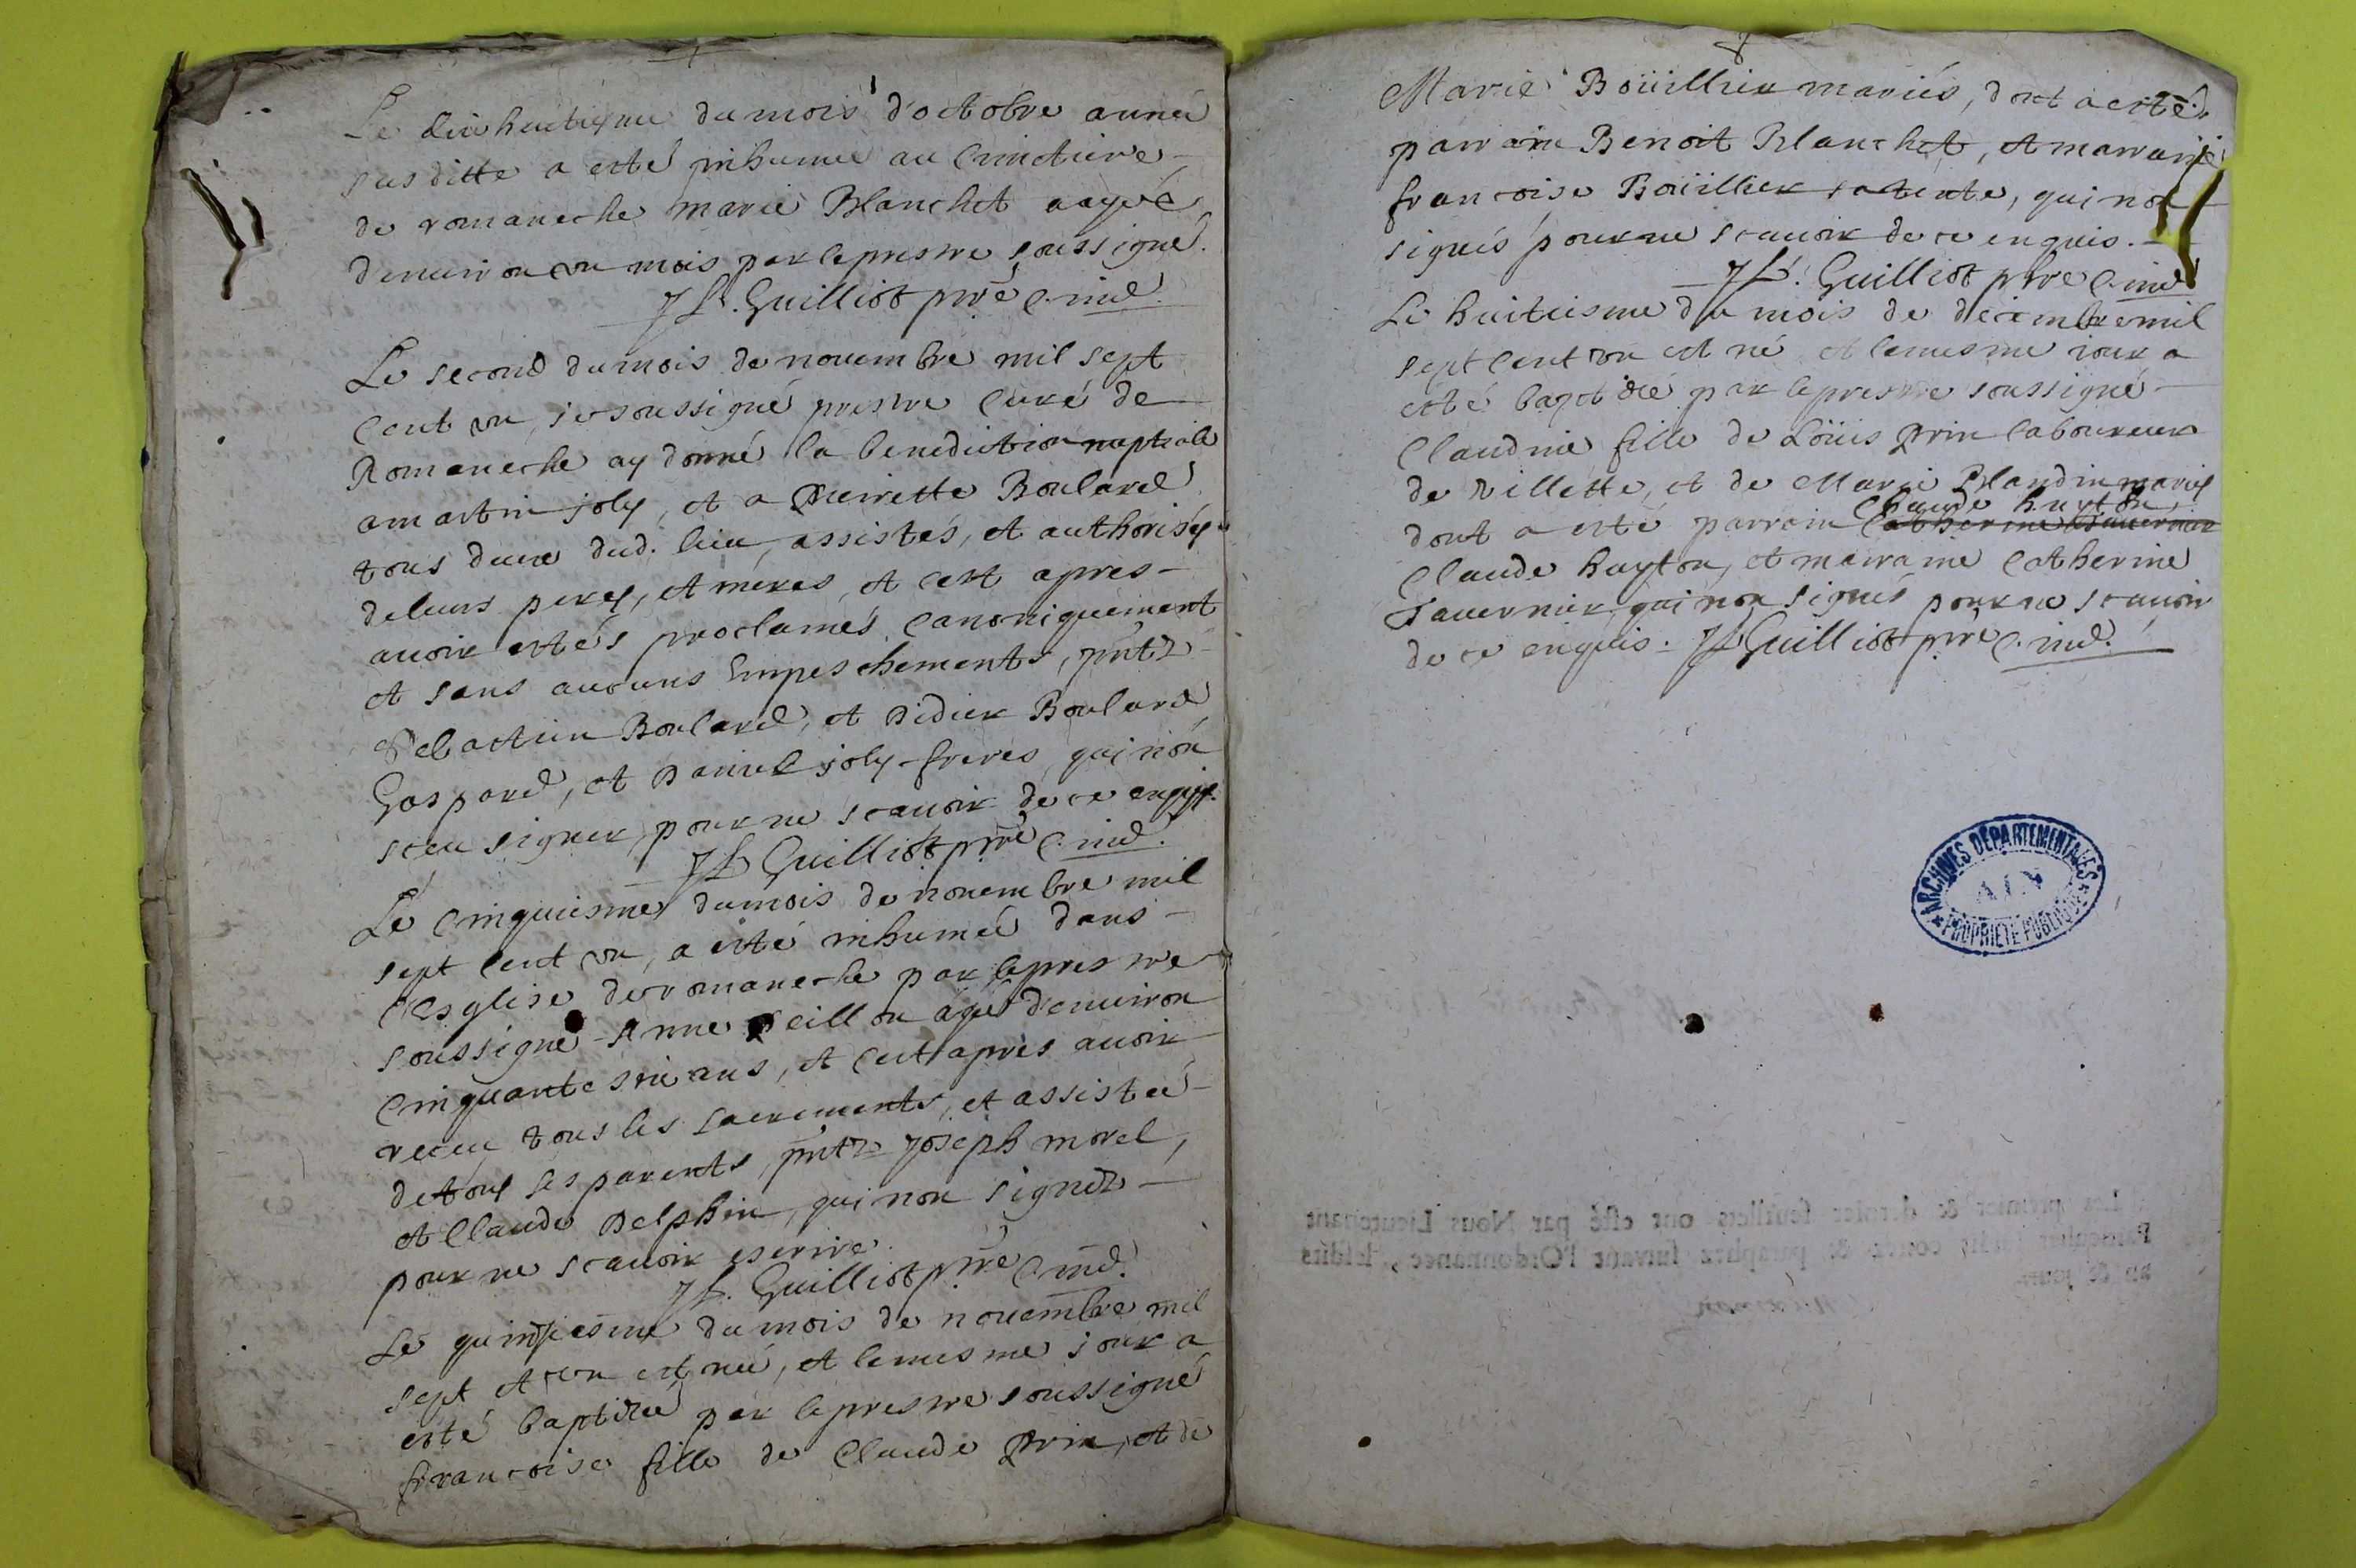 Le dixhuitiesme du mois d'octobre année
susditte a esté inhumée au Cimetiere
de romaneche marie Blanchet aagée
d'environ un mois par le prestre soussigné.
Guilliot pre C. ind.
Le second du mois de nouembre mil sept
Cent un, je soussigné prestre Curé de
Romaneche ay donné la benediction nuptiale
a martin joly, et a Pierrette Boulard
tous deux dud. lieu, assistés, et authorisés
de leurs peres, et meres, et cest apres
auoir estés proclamés Canoniquement
et sans aucuns Empeschements, pntz
Sebastien Boulard, et Didier Boulard
Gaspard, et Daniel joly freres, qui n'on
sceu signer, pour ne scauoir de ce enquis.
Guilliot pre C. ind.
Le Cinquiesme du mois de nouembre mil
sept Cent un, a esté inhumée dans
l'Esglise de romaneche par le prestre
soussigné Anne eillon agée d'enuiron
Cinquante six ans, et cest apres auoir
receu tous les sacrements, et assistée
de tous ses parents, pntz joseph morel,
et Claude Delphin, qui non signez
pour ne scauoir escrire.
Guilliot pre C. ind.
Le quinziesme du mois de nouembre mil
sept et un est née, et le mesme jour a
esté baptizée par le prestre soussigné
francoise fille de Claude prin, et de
Marie Boüillier mariés, dont a esté
parrain Benoit Blanchet, et marraine
francoise Boüillier sa tente, qui non
signés pour ne scauoir de ce enquis.
Guilliot pbre C. ind
Le huitiesme du mois de decembre mil
sept Cent un est né et le mesme iour a
esté baptizé par le prestre soussigné
Claudine fille de Loüis prin laboureur
de Villette, et de Marie Blandin mariés
Claude huyton
dont a esté parrain Catherine tauernier
Claude huyton, et marraine Catherine
Tauernier, qui non signés pour ne scauoir
de ce enquis. Guilliot pre C. ind.
ARCHIVES DÉPARTEMENTALES
AIN
PROPRIÉTÉ PUBLIQUE